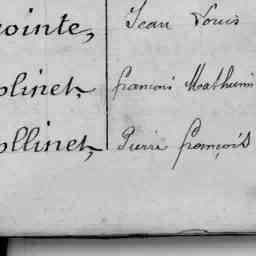 ointe, Jean Louis
olinet, François Mathurin
ollinet, Pierre François